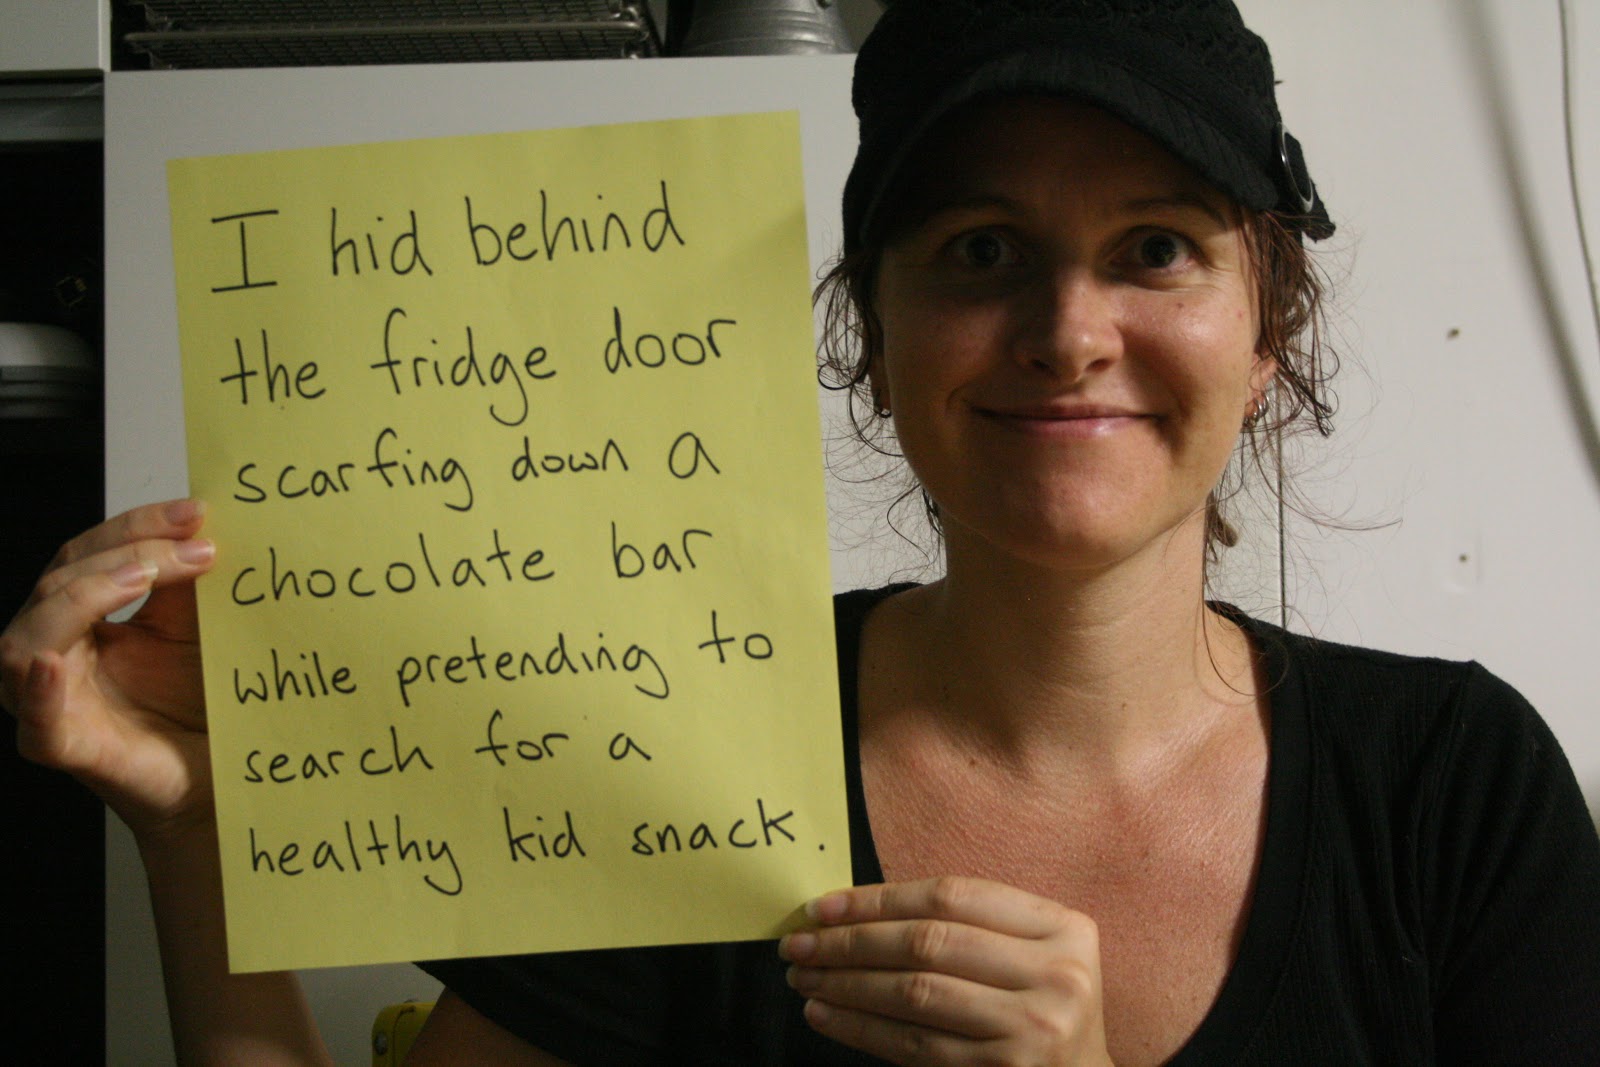 I hid behind
the fridge door
scarfing down a
chocolate bar
while pretending to
search for a
healthy kid snack.